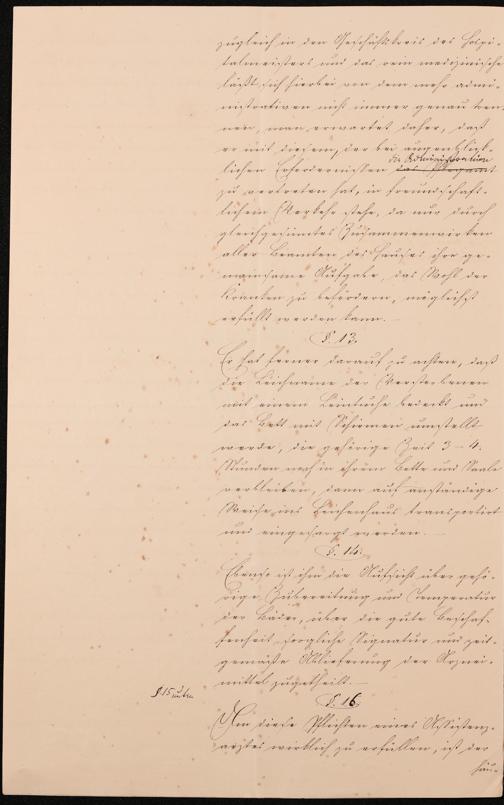 zugleich in den Geschäftskreis des Hospi-
talmeisters und das rein medizinische
läßt sich hierbei von dem mehr admi-
nistrativen nicht immer genau tren-
nen, man erwartet daher, daß
er mit diesem, der bei augenblick-
die Administration
lichen Erfordernissen das Pflegamt
zu vertreten hat, in freundschaft-
lichem Verkehr stehe, da nur durch
gleichgesinntes Zusammenwirken
aller Beamten des Hauses ihre ge-
meinsame Aufgabe, das Wohl der
Kranken zu befördern, möglichst
erfüllt werden kann.
§. 13.
Er hat ferner darauf zu achten, daß
die Leichname der Verstorbenen
mit einem Leintuche bedeckt und
das Bett mit Schirmen umstellt
werde, die gehörige Zeit 3-4
Stunden noch in ihrem Bette und Saale
verbleiben, dann auf anständige
Weise ins Leichenhaus transportirt
und eingesargt werden.
§. 14.
Ebenso ist ihm die Aufsicht über gehö-
rige Zubereitung und Temperatur
der Bäder, über die gute Beschaf-
fenheit, sorgliche Signatur und zeit-
gemäße Ablieferung der Arznei-
mittel zugetheilt.
§ 15
§. 16.
Um diese Pflichten eines Assistenz-
arztes wirklich zu erfüllen, ist der